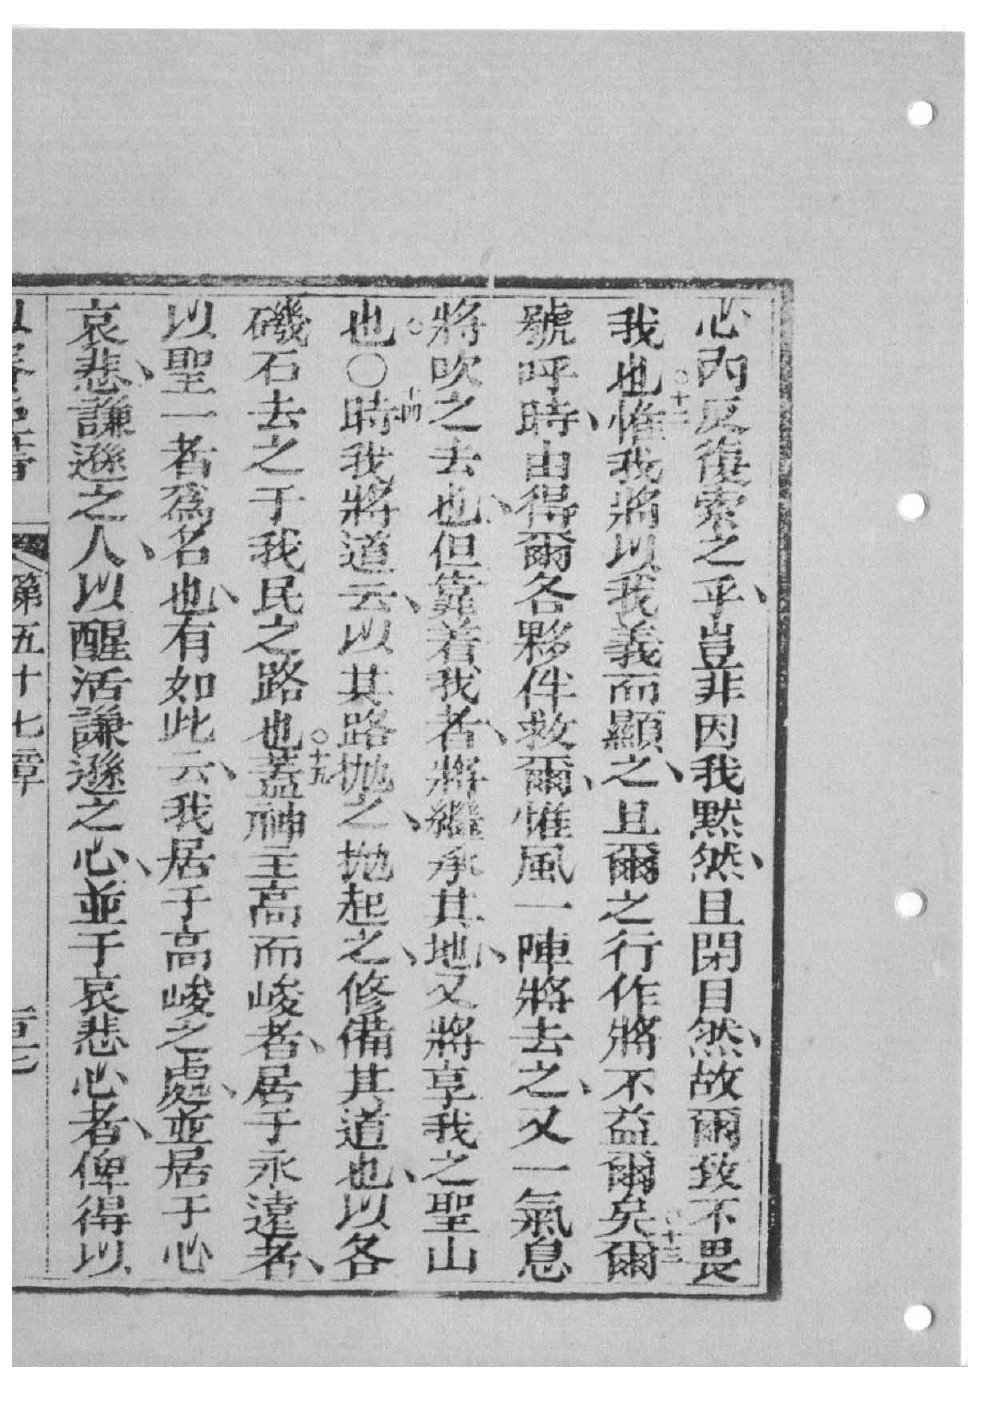 心內反復索之乎、豈非因我默然、且閉目然、故爾致不畏
我也○十二惟我將以我義而顯之、且爾之行作將不益爾矣○十三爾
號呼時、由得爾各夥伴救爾、惟風一陣將去之、又一氣息
將吹之去也、但靠着我者、將繼承其地、又將享我之聖山
也○○十四時我將道云、以其路拋之、拋起之、修備其道也、以各
磯石去之于我民之路也○十九蓋神主高而峻者、居于永遠者、
以聖一者爲名也、有如此云、我居于高峻之處、並居于心
哀悲、謙遜之人、以醒活謙遜之心、並于哀悲心者、俾得以
第五十七章